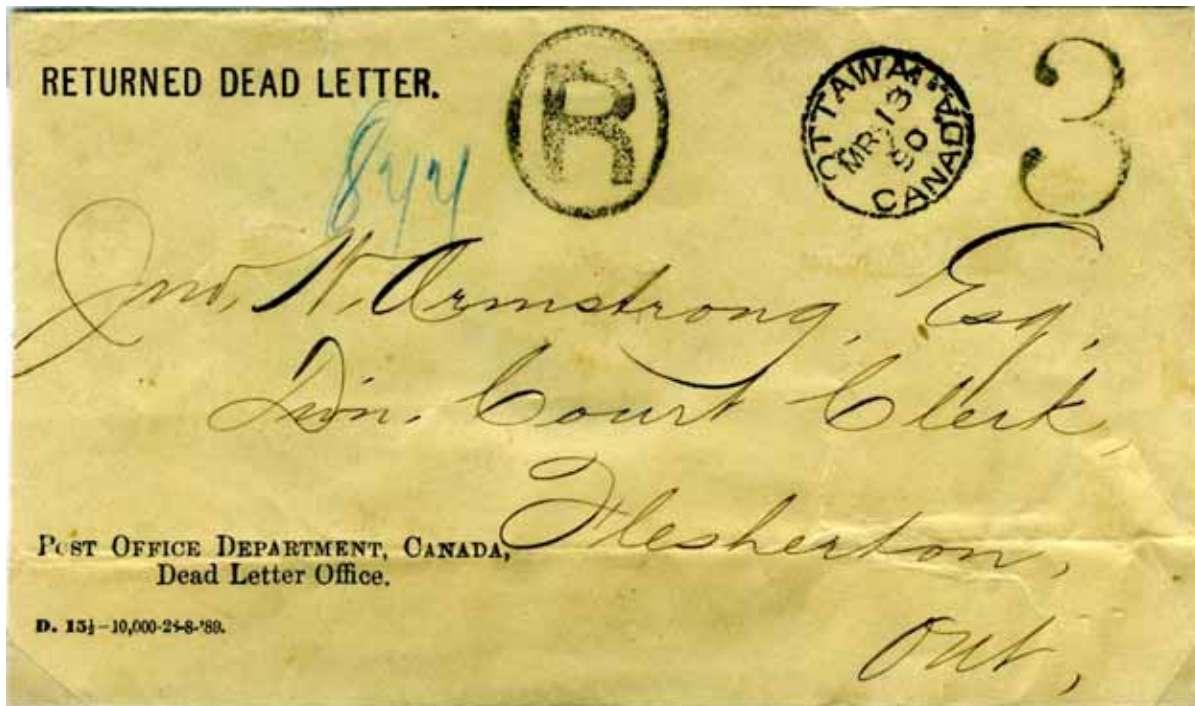 RETURNED DEAD LETTER.
R
OTTAWA
MR 13
90
CANADA
3
844
Jno. W. Armstrong, Esq.
Divn. Court Clerk,
Flesherton,
Ont,
POST OFFICE DEPARTMENT, CANADA,
Dead Letter Office.
D. 15½-10,000-28-8-'89.